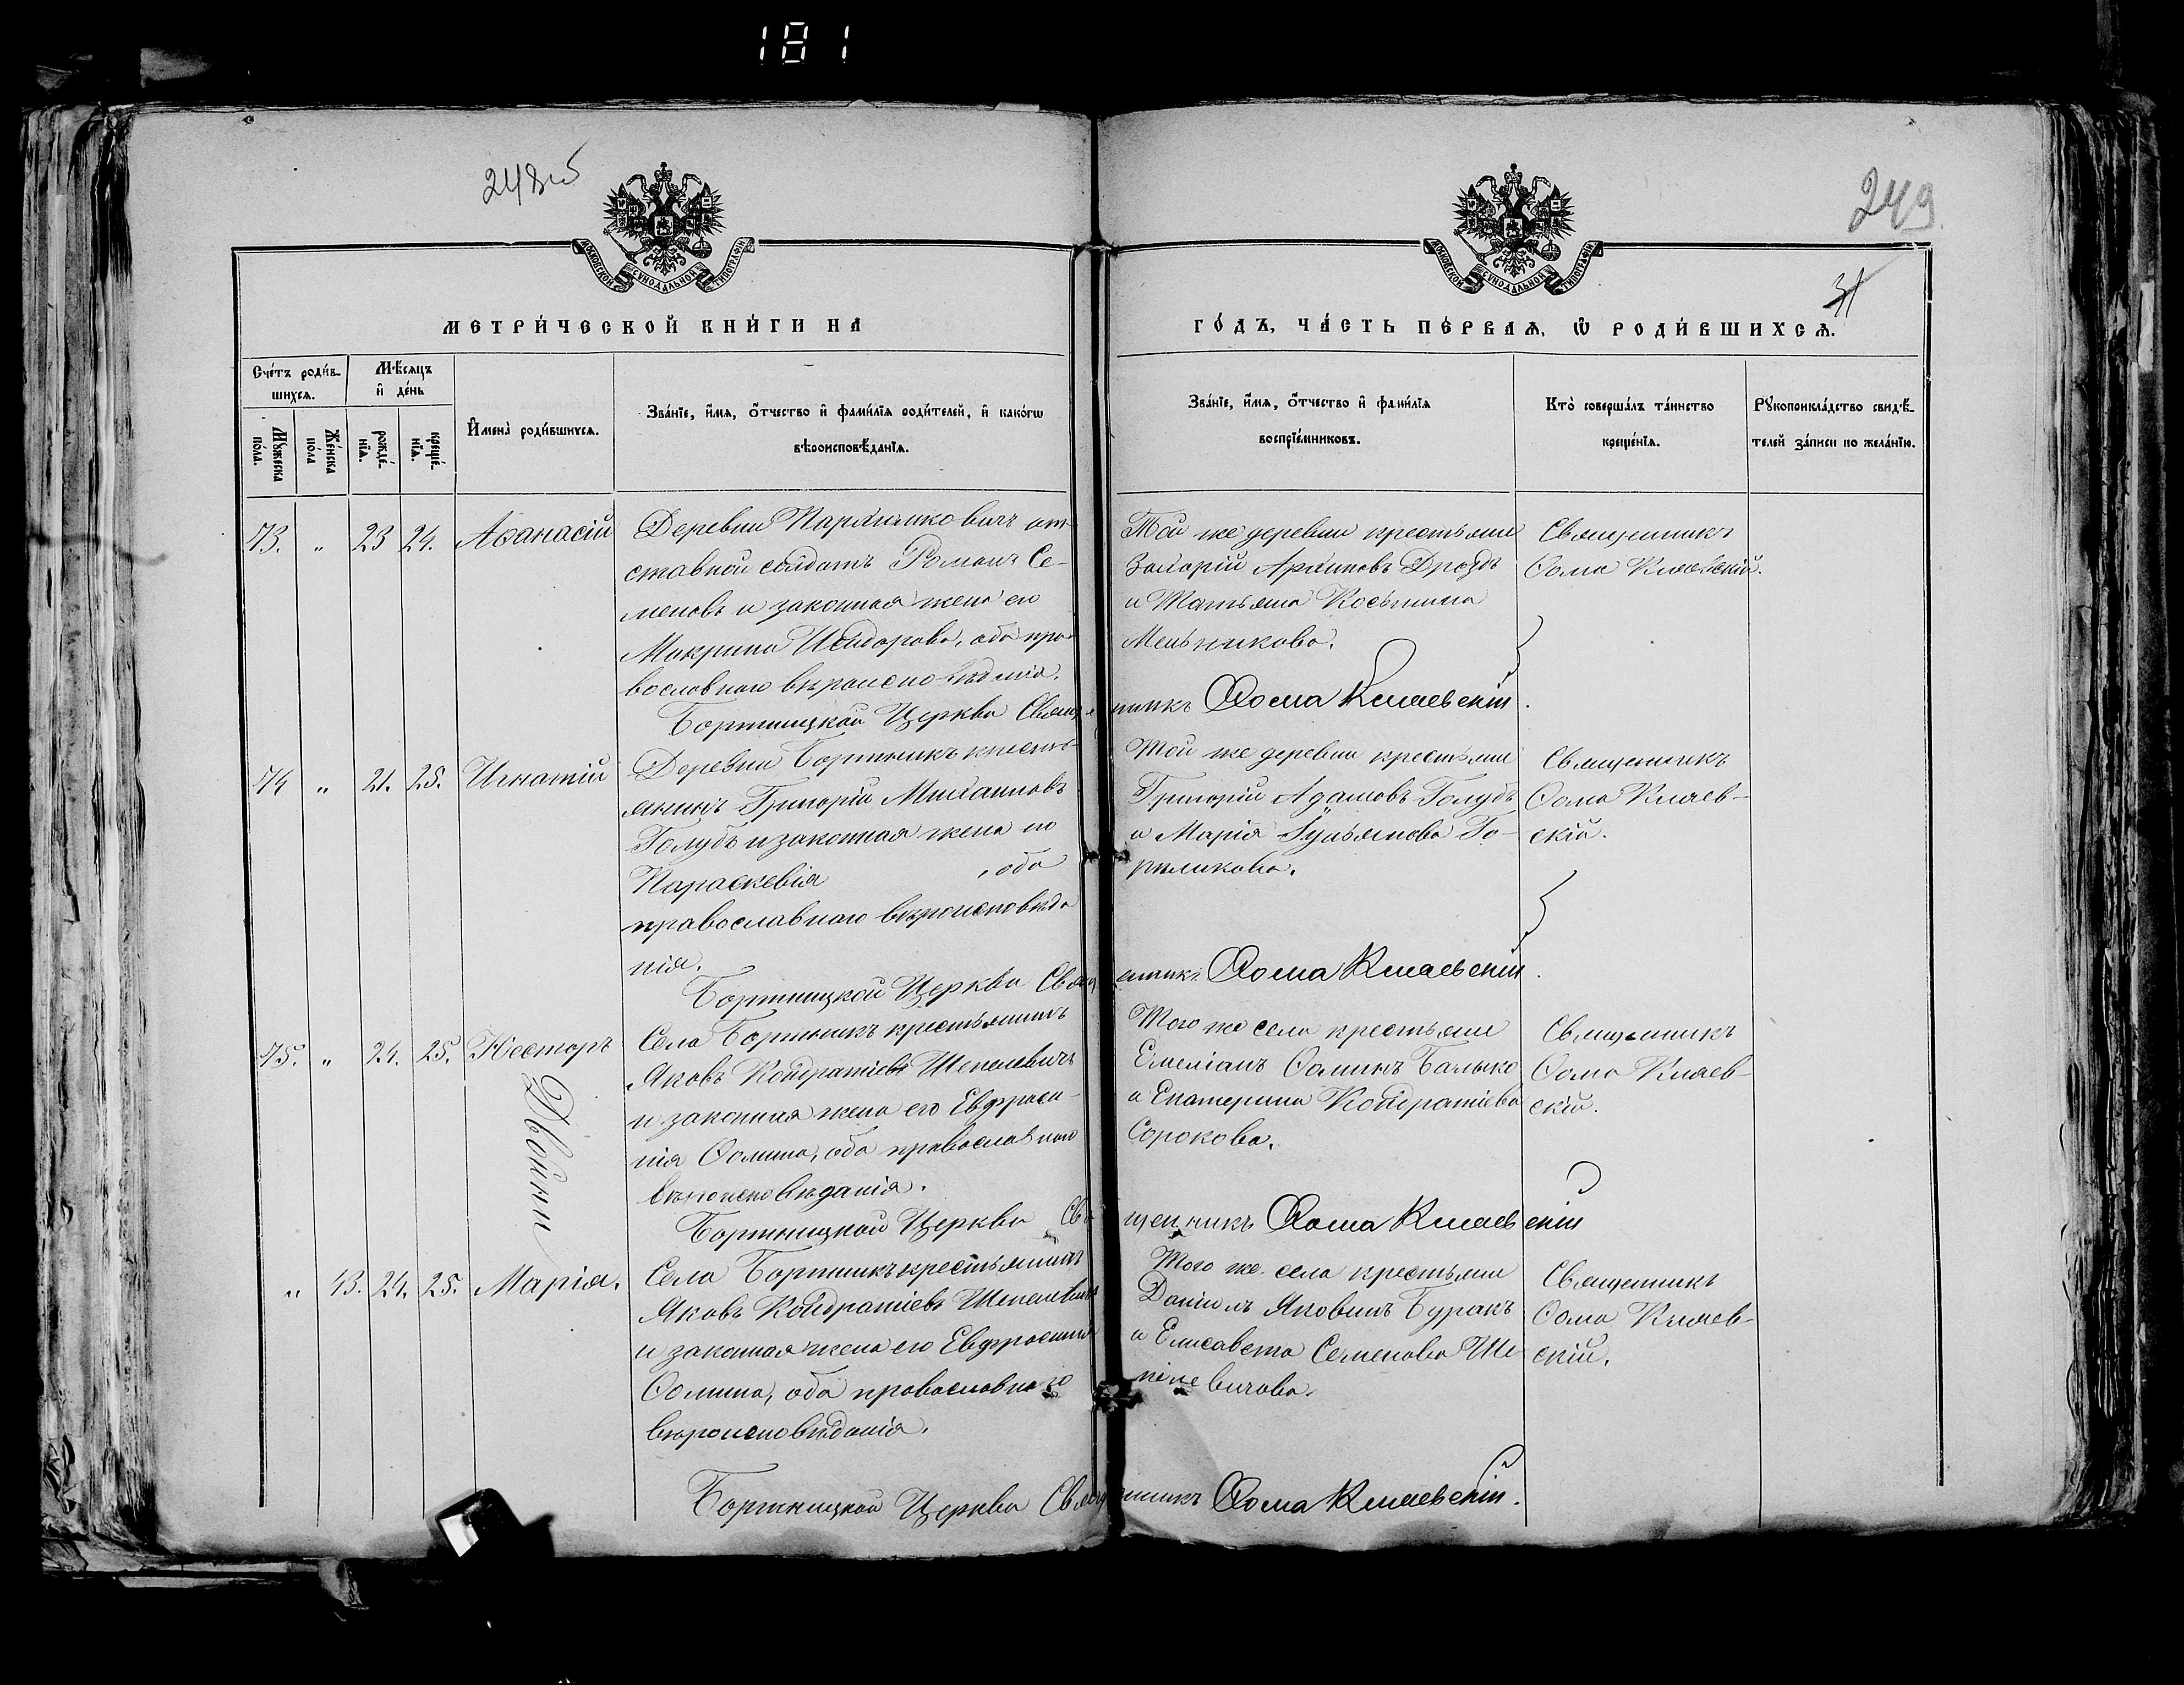 181
248об
249
31
МОСКОВСКОЙ СѴНОДАЛЬНОЙ ТИПОГРАФІИ
МОСКОВСКОЙ СѴНОДАЛЬНОЙ ТИПОГРАФІИ
МЕТРИ́ЧЕСКОЙ КНИ́ГИ НА
ГО́ДЪ, ЧА́СТЬ ПЕ́РВАѦ, Ѽ РОДИ́ВШИХСѦ.
Сче́тъ роди́в-
шихсѧ.
Мѣ́сѧцъ
и҆ де́нь
Мꙋ́жеска
по́ла.
Же́нска
по́ла
рожде́-
нїѧ.
креще́-
нїѧ.
И҆мена̀ роди́вшихсѧ.
Зва́нїе, и҆́мѧ, ѻ҆́тчество и҆ фами́лїѧ роди́телей, и҆ како́гѡ
вѣроисповѣ́данїѧ.
Зва́нїе, и҆́мѧ, ѻ҆́тчество и҆ фами́лїѧ
воспрїе́мниковъ.
Кто̀ соверша́лъ та́инство
креще́нїѧ.
Рꙋкоприкла́дство свидѣ́-
телей за́писи по жела́нїю.
73. „ 23 24. Аѳанасій
Деревни от-
ставной солдатъ Романъ Се-
меновъ и законная жена его
Макрина Исидорова, оба пра-
вославнаго вѣроисповѣданія.
Той же деревни крестьяне
Дроздъ
и Татьяна Косьмина
Мельникова.
Священникъ
Ѳома Кліаевскій.
Бортницкой Церкви Священникъ Ѳома Кліаевскій.
74 „ 21. 25. Игнатій
Деревни Бортникъ кресть-
янинъ Григорій Михаиловъ
Голубъ и законная жена его
Параскевія , оба
православнаго вѣроисповѣда
нія.
Той же деревни крестьяне
Григорій Адамовъ Голубъ
и Марія Го-
Священникъ
Ѳома Кліаев-
скій.
Бортницкой Церкви Священникъ Ѳома Кліаевскій.
75. „ 24. 25. Несторъ
Двойни
Села Бортникъ крестьянинъ
Яковъ Кондратіевъ Шепелевичъ
и законная жена его Евфроси-
нія Ѳомина, оба православнаго
вѣроисповѣданія.
Того же села крестьяне
Емеліанъ Ѳоминъ Балыко
и Екатерина Кондратіева
Сорокова.
Священникъ
Ѳома Кліаев-
скій.
Бортницкой Церкви Священникъ Ѳома Кліаевскій
„ 43. 24. 25. Марія.
Села Бортникъ крестьянинъ
Яковъ Кондратіевъ Шепелевичъ
и законная жена его Евфросинія
Ѳомина, оба православнаго
вѣроисповѣданія.
Того же села крестьяне
Даніилъ Яковинъ Буракъ
и Елисавета Семенова Ше-
пелевичова.
Священникъ
Ѳома Кліаев-
скій.
Бортницкой Церкви Священникъ Ѳома Кліаевскій.